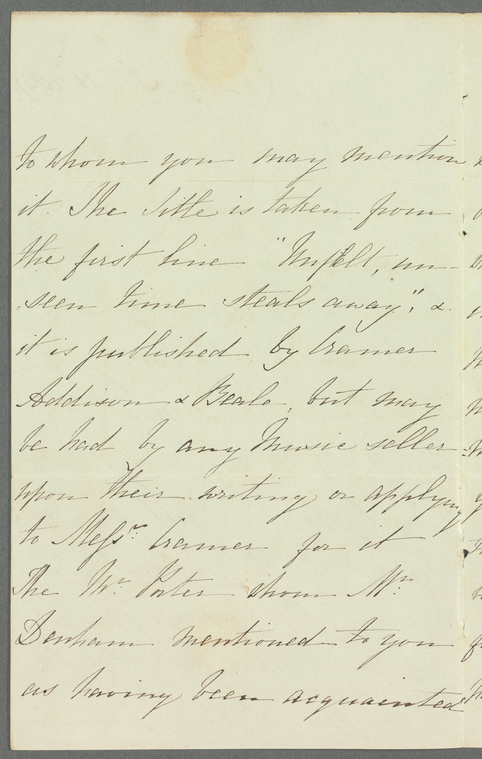 to whom you may mention
it. The title is taken from
the first line "Unfelt, un-
seen time steals away", &
it is published by Cramer
Addison & Beale, but may
be had by any Music seller
upon their writing or applying
to Messrs. Cramer for it
The Mr. Porter whom Mr.
Denham mentioned to you
as having been acquainted